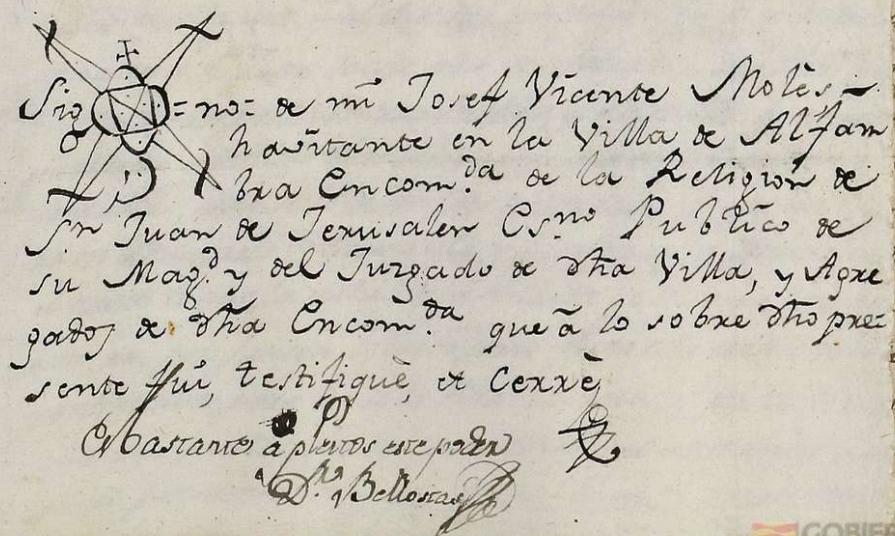 Sig=no= de mi Josef Vicente Molès
havitante en la Villa de Alfam
bra Encom.da de la Religion de
Sn Juan de Jerusalen Es.no Publico de
su Mag.d y del Juzgado de dha Villa, y Agre
gados de dha Encom.da que à lo sobre dho pre=
sente fui, testifiquè, et Cerrè
Es bastante à pleitos este poder
D.r Bellostas
GOBIER